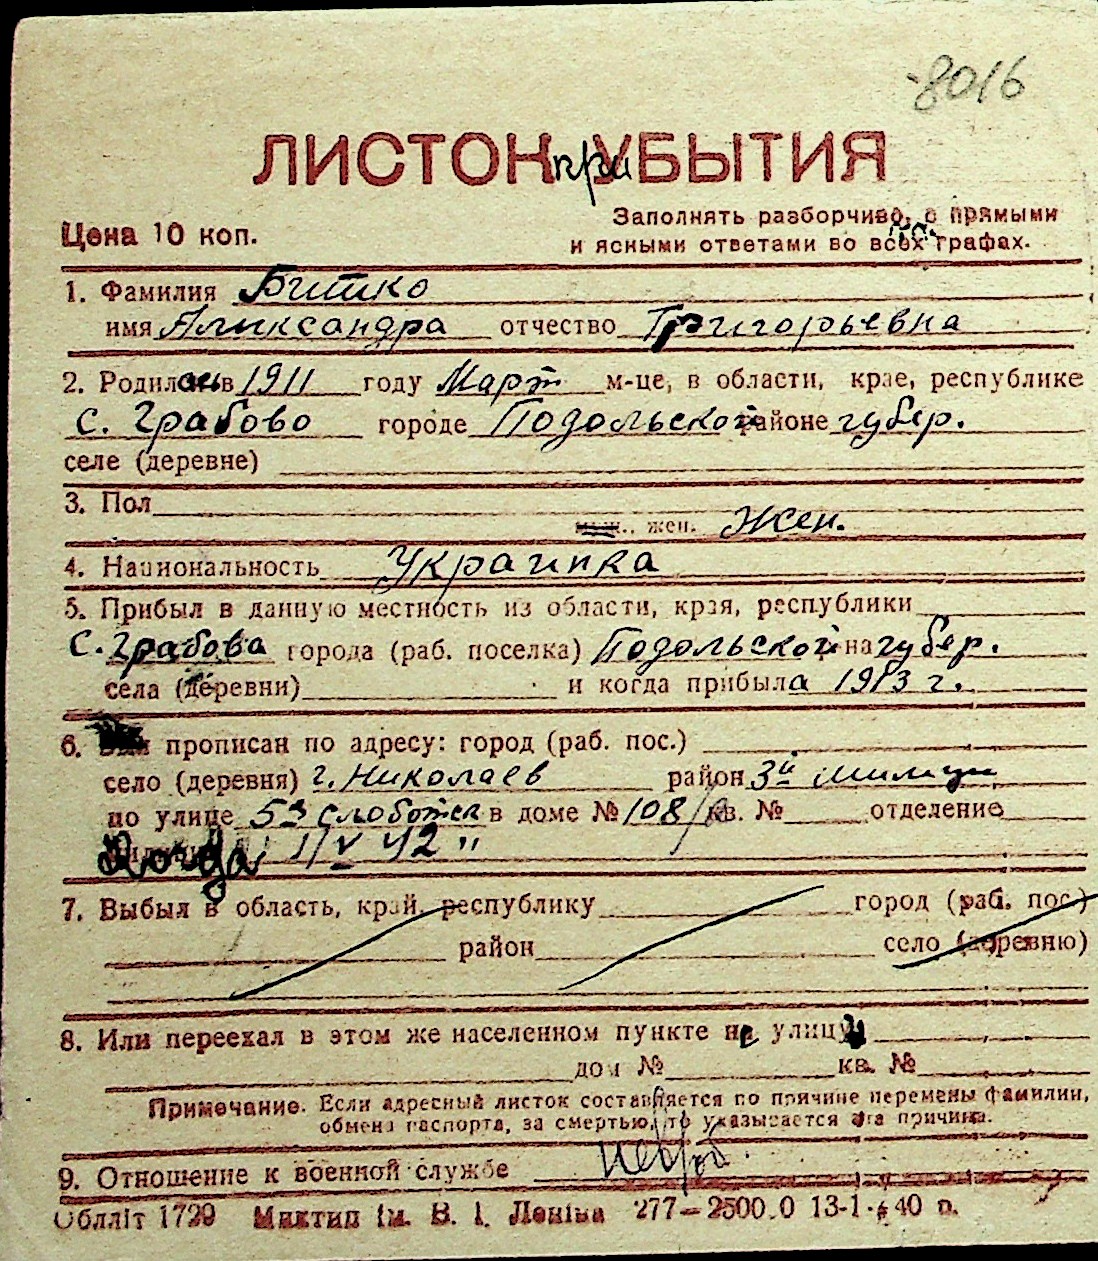 8016
ЛИСТОК при УБЫТИЯ
Цена 10 коп.
Заполнять разборчиво, с прямыми
и ясными ответами во всех графах.
1. Фамилия Битко
имя Александра отчество Григорьевна
2. Родилась в 1911 году Март м-це, в области, крае, республике
с. Грабово городе Подольской районе губер.
селе (деревне)
3. Пол
муж., жен. Жен.
4. Национальность Украинка
5. Прибыл в данную местность из области, края, республики
с. Грабова города (раб. поселка) Подольской губер.
села (деревни) и когда прибыла 1913 г.
6. прописан по адресу: город (раб. пос.)
село (деревня) г. Николаев район 3й милиц
по улице 5я слоботка в доме № 108 кв. № отделение
7. Выбыл в область, край, республику город (раб. пос.)
район село (деревню)
8. Или переехал в этом же населенном пункте на улицу
дом № кв. №
Примечание. Если адресный листок составляется по причине перемены фамилии,
обмена паспорта, за смертью, то указывается эта причина.
9. Отношение к военной службе
Обллiт 1729 Миктип iм. В. I. Ленiна 277—2500.0 13-1 40 р.